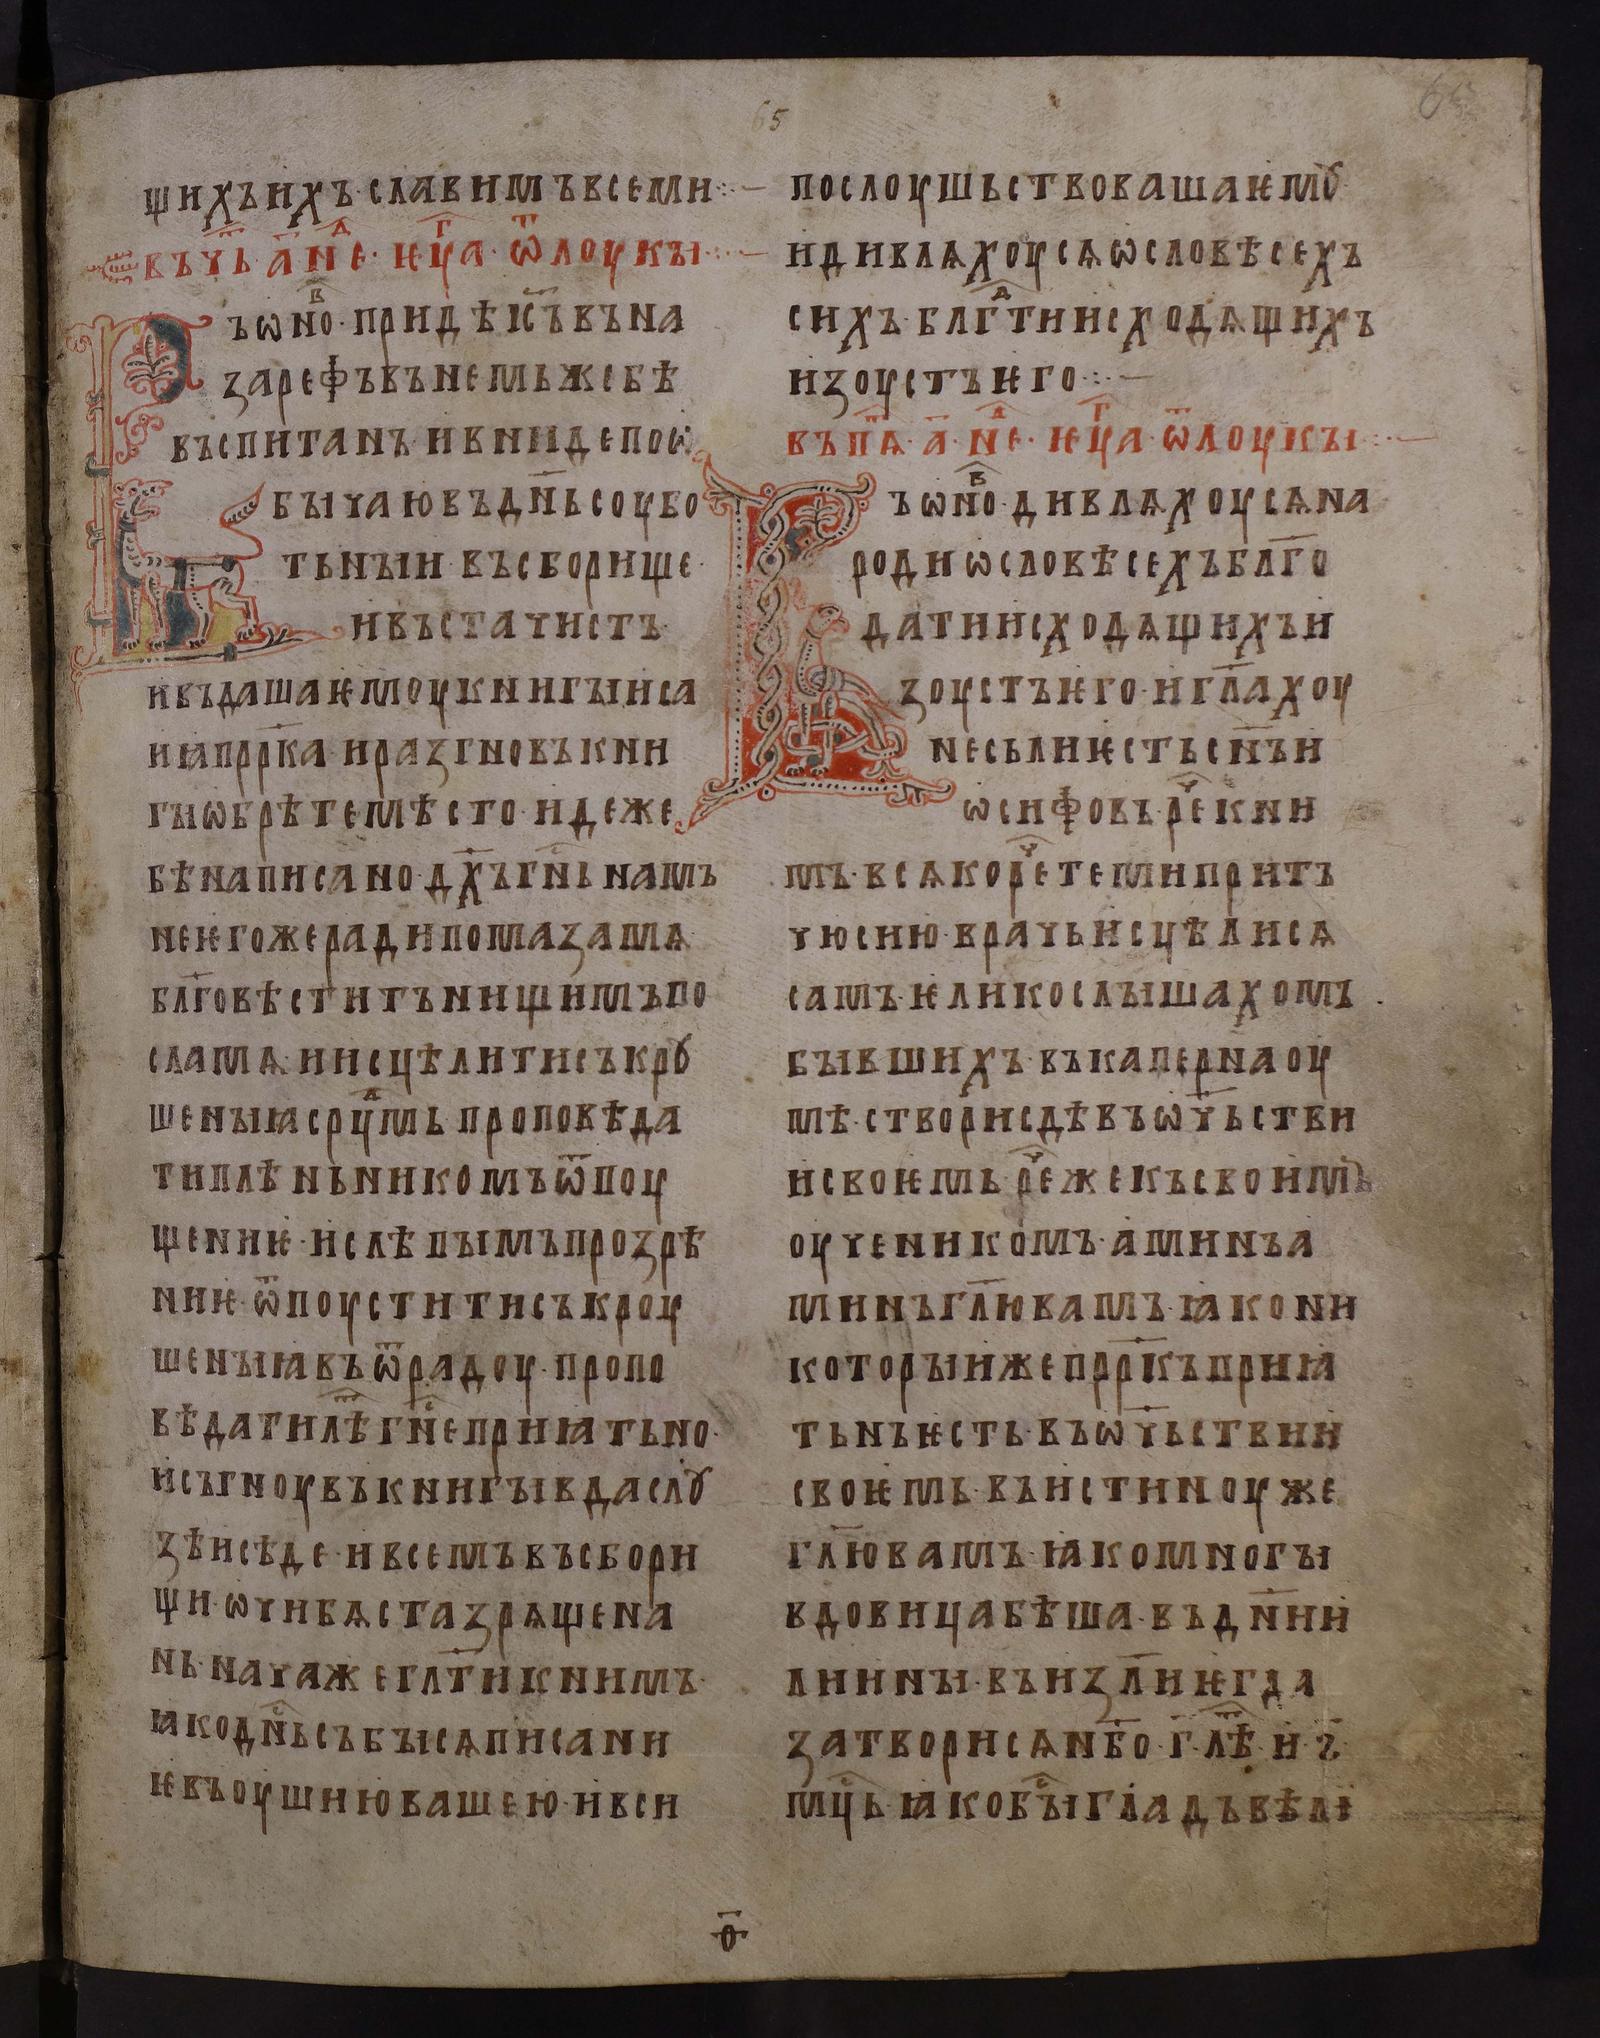 65
щихъ ихъ· славимъ всеми
въ чь· а҃· не· ѥуⷢ҇а· ѿ лоукы
въ ѡⷩ҇о· приде и҃съ въ на
зареѳъ въ немьже бѣ
въспитанъ· и вниде по ѡ
бычаю въ дн҃ь соубо
тьныи въ сборище·
и въста чистъ·
и въдаша ѥмоу книгы иса
иꙗ прр҃ка· и разгновъ кни
гы ѡбрѣте мѣсто· идеже
бѣ написано· дх҃ъ гн҃ь на мъ
не ѥгоже ради помаза мѧ·
блг҃овѣститъ нищимъ по
сла мѧ· и исцѣлити съкрꙋ
шеныꙗ срⷣцмь· проповѣда
ти плѣньникомъ ѿпоу
щениѥ· и слѣпымъ прозрѣ
ниѥ· ѿпоустити съкроу
шеныꙗ въ ѿрадоу· пропо
вѣдати лѣⷮ гн҃е приꙗтьно·
и съгноувъ книгы вда слꙋ
зѣ и сѣде· и всемъ въ сбори
щи· ѡчи бѧста зрѧще на
нь· начаже гл҃ти к нимъ·
ꙗко днⷭ҇ь събысѧ писани
ѥ въ оушию вашею· и вси
послоушьствовашa ѥмꙋ
и дивлѧхоусѧ ѡ словѣсехъ
сихъ· блгⷣти исходѧщихъ
из оустъ ѥго
въ пѧⷮ· а҃· не· ѥуⷢ҇а· ѿ лоукы
въ ѡⷩ҇о· дивлѧхоусѧ на
роди ѡ словѣсехъ блг҃о
дати исходѧщихъ и
з оустъ ѥго· и гл҃ахоу
не сь ли ѥсть сн҃ъ и
ѡсифовъ· реⷱ к ни
мъ· всѧко реⷱте ми прит
чю сию· врачь исцѣлисѧ
самъ· ѥлико слышахомъ
бывшихъ· въ капернаоу
мѣ· створи сдѣ въ ѡч҃ьстви
и своѥмь· реⷱ же къ своимъ
оученикомъ· аминъ а
минъ гл҃ю вамъ· ꙗко ни
которыиже прр҃къ приꙗ
тьнъ ѥсть· въ ѡч҃ьствии
своѥмь· въ истиноу же
гл҃ю вамъ· ꙗко многы
вдовица бѣша· въ дн҃и и
лиины· въ из҃ли ѥгда
затворисѧ нб҃о· г҃· лѣⷮ· и ѕ҃·
мцⷭ҇ь ꙗко быⷭ гладъ вѣли
о҃